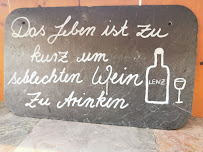 Das Leben ist zu
kurz um
schlechten Wein
zu trinken
LENZ